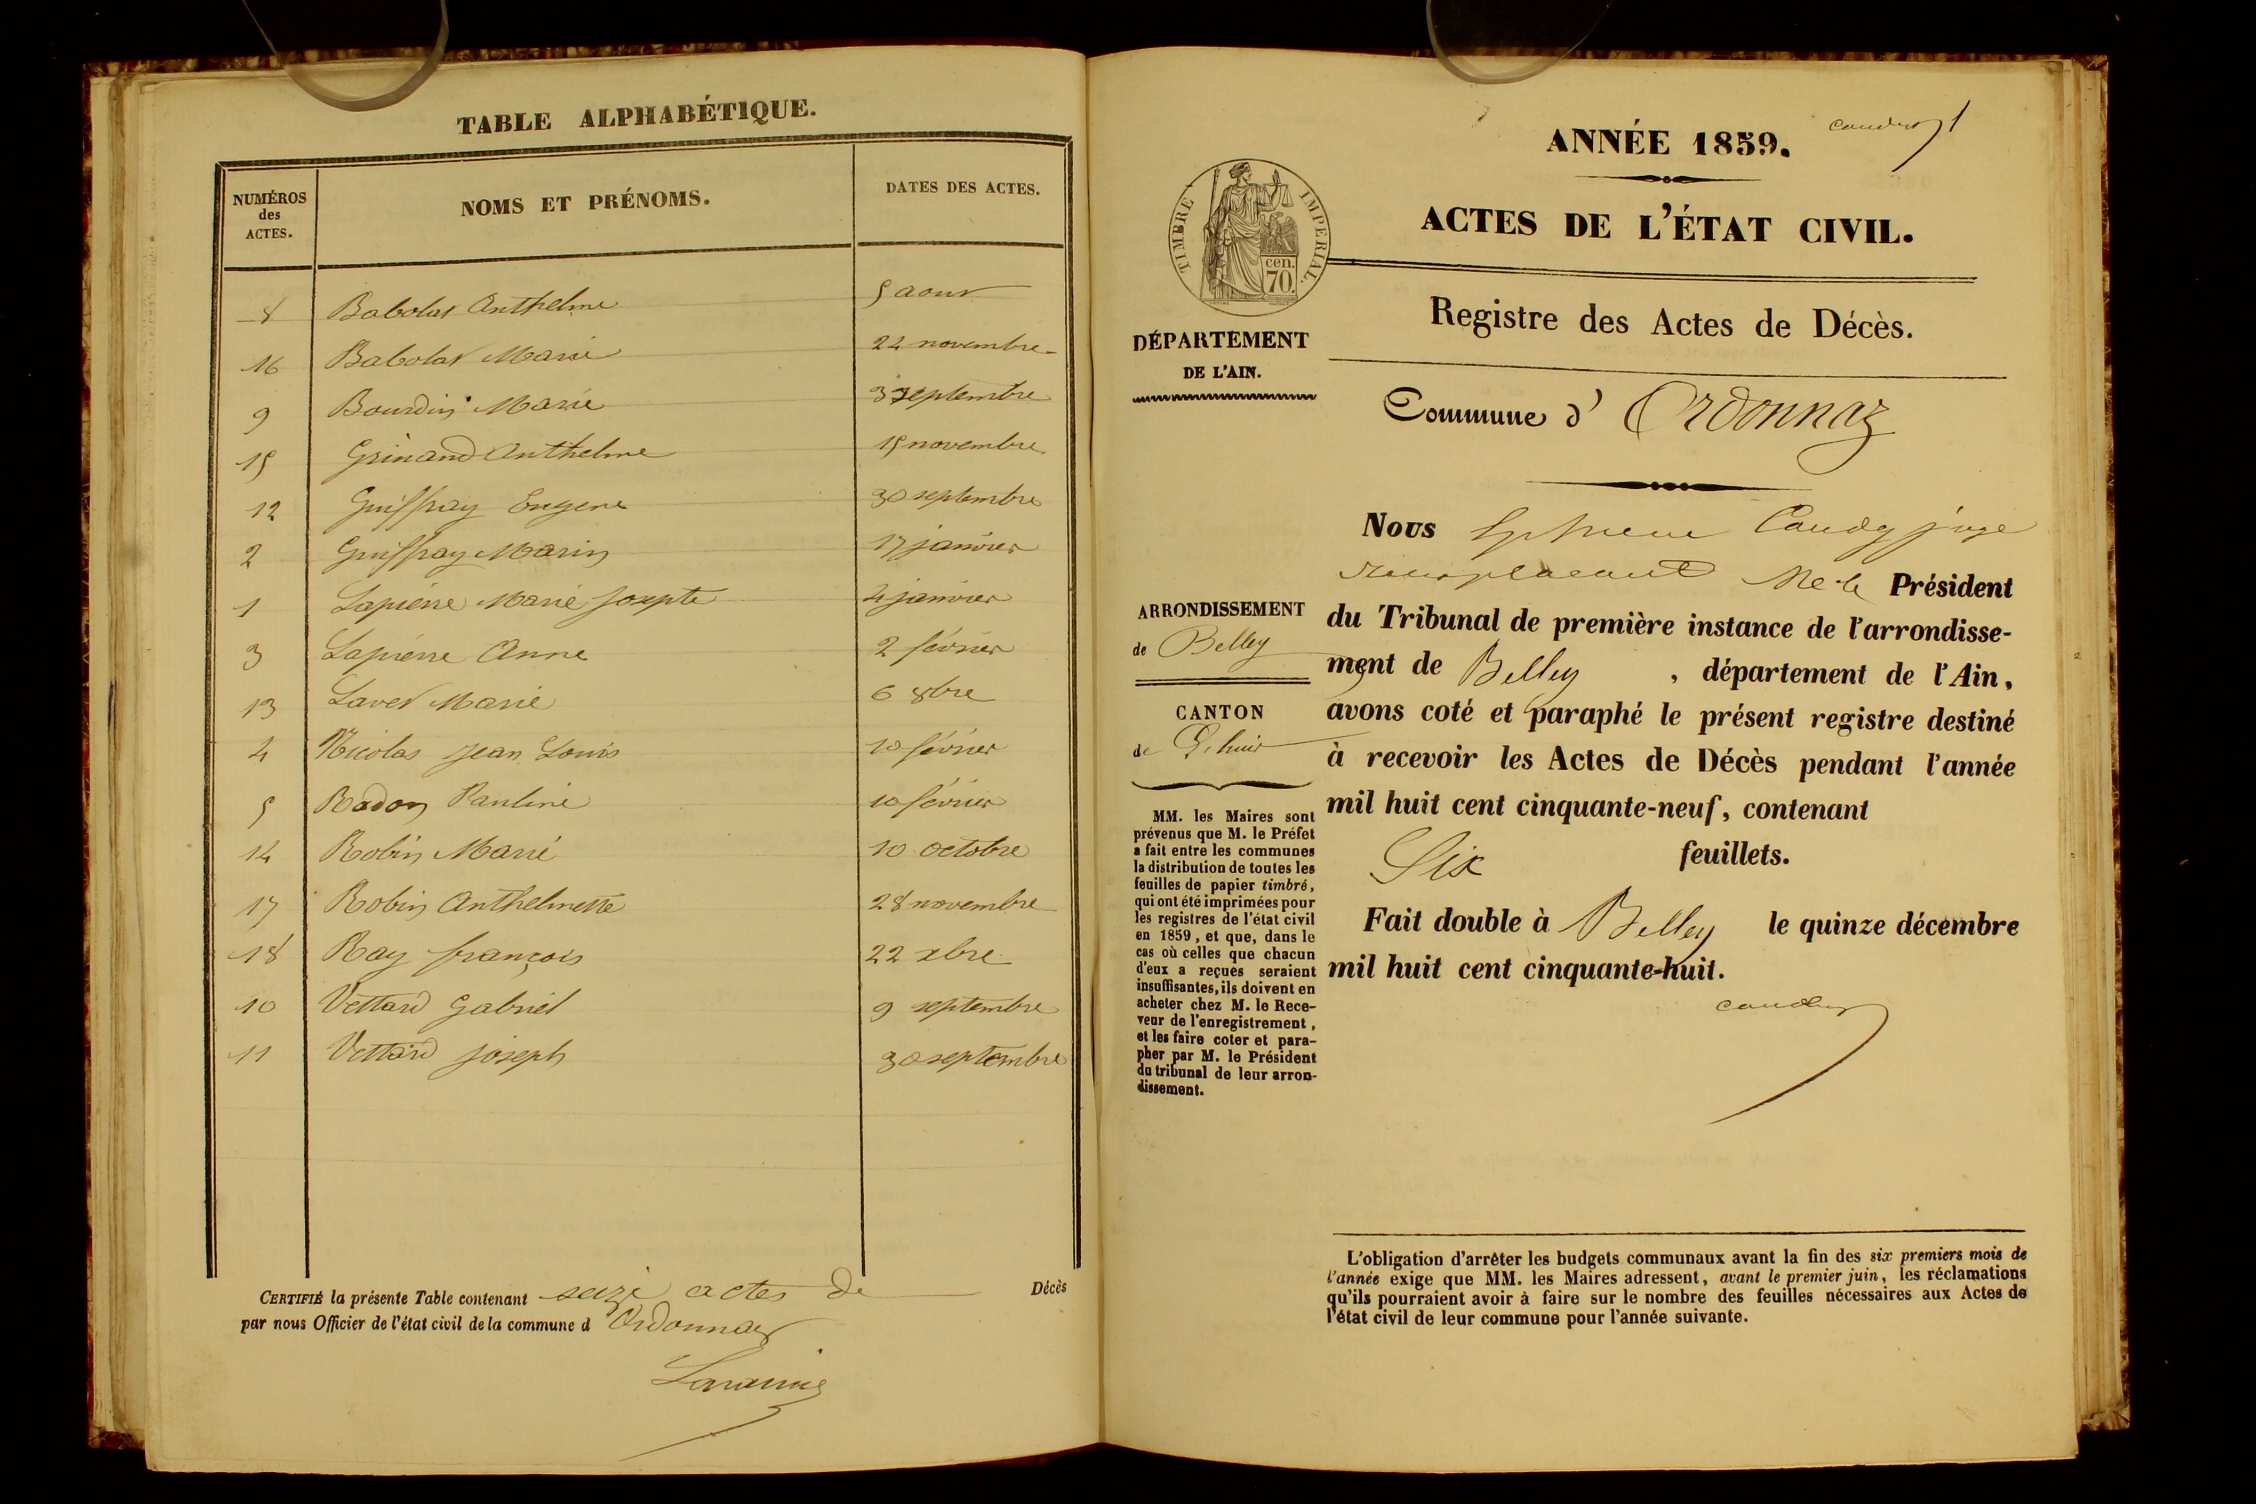 TABLE ALPHABÉTIQUE.
NUMÉROS des ACTES. NOMS ET PRÉNOMS. DATES DES ACTES.
8 Babolat Anthelme 5 aout
16 Babolat Marie 24 novembre
9 Bourdin Marie 3 septembre
15 Grinand Anthelme 15 novembre
12 Guiffray Eugene 30 septembre
2 Guiffray Marin 17 janvier
1 Lapierre Marie Josepte 4 janvier
3 Lapierre Anne 2 février
13 Lavet Marie 6 8bre
4 Nicolas Jean Louis 10 février
5 Radon Pauline 10 février
14 Robin Marie 10 octobre
17 Robin Anthelmette 28 novembre
18 Ray françois 22 xbre
10 Vettard Gabriel 9 septembre
11 Vettard joseph 30 septembre
CERTIFIÉ la présente Table contenant seize actes de Décès
par nous Officier de l'état civil de la commune d Ordonnaz
ANNÉE 1859.
Caudy 1
ACTES DE L'ÉTAT CIVIL.
TIMBRE IMPERIAL.
cen.
70.
Registre des Actes de Décès.
DÉPARTEMENT
DE L'AIN.
Commune d' Ordonnaz
ARRONDISSEMENT
de Belley
CANTON
de
MM. les Maires sont
prévenus que M. le Préfet
a fait entre les communes
la distribution de toutes les
feuilles de papier timbré,
qui ont été imprimées pour
les registres de l'état civil
en 1859, et que, dans le
cas où celles que chacun
d'eux a reçues seraient
insuffisantes, ils doivent en
acheter chez M. le Rece-
veur de l'enregistrement,
et les faire coter et para-
pher par M. le Président
du tribunal de leur arron-
dissement.
Nous Caudy juge
remplacant Mr le Président
du Tribunal de première instance de l'arrondisse-
ment de Belley, département de l'Ain,
avons coté et paraphé le présent registre destiné
à recevoir les Actes de Décès pendant l'année
mil huit cent cinquante-neuf, contenant
Six feuillets.
Fait double à Belley le quinze décembre
mil huit cent cinquante-huit.
Caudy
L'obligation d'arrêter les budgets communaux avant la fin des six premiers mois de
l'année exige que MM. les Maires adressent, avant le premier juin, les réclamations
qu'ils pourraient avoir à faire sur le nombre des feuilles nécessaires aux Actes de
l'état civil de leur commune pour l'année suivante.